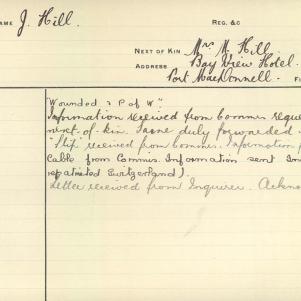 NAME J. Hill.
REG. &C
NEXT OF KIN Mrs. M. Hill.
ADDRESS Bay View Hotel.
Port MacDonnell.
Wounded & P of W".
Information received from Commis
next-of-kin. Same duly forwarded
"Slip" received from Commis. Information
Cable from Commis. Information sent
repatriated Switzerland).
Letter received from Inquirer.